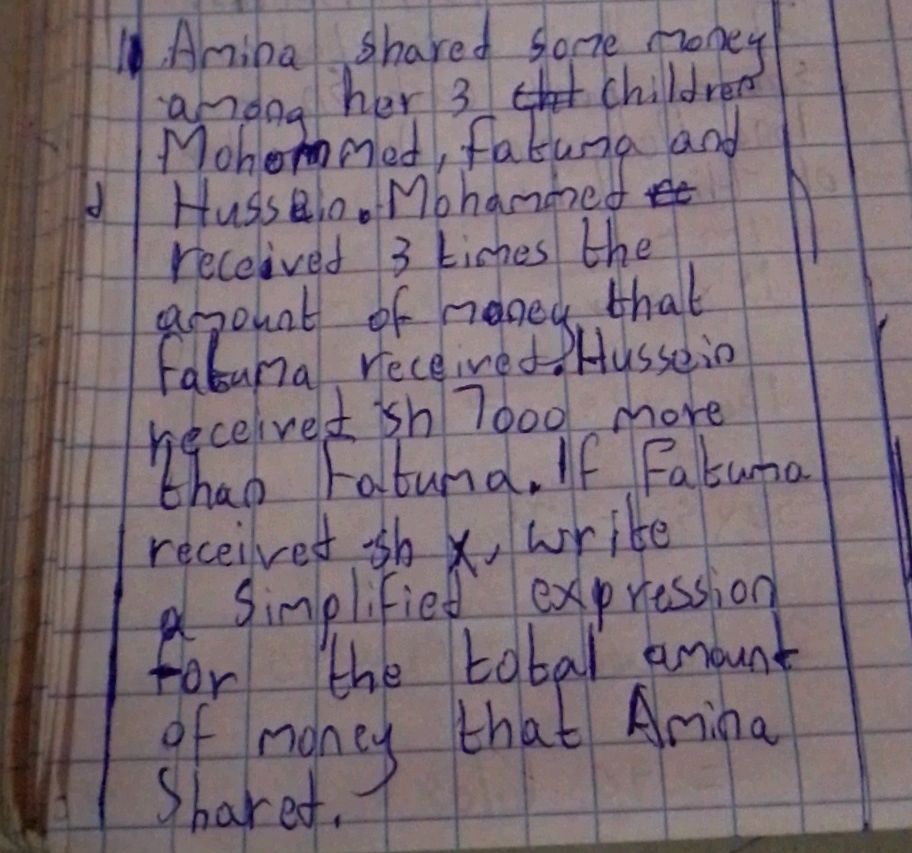 1 Amina shared some money
among her 3 children
Mohommed, Fatuma and
Hussein. Mohammed
received 3 times the
amount of money that
Fatuma received. Hussein
received sh 7000 more
than Fatuma. If Fatuma
received sh x, write
a simplified expression
for the total amount
of money that Amina
Shared.